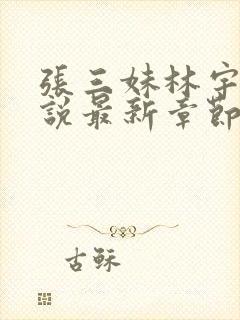 張三妹林宇
說最新章節
古穌